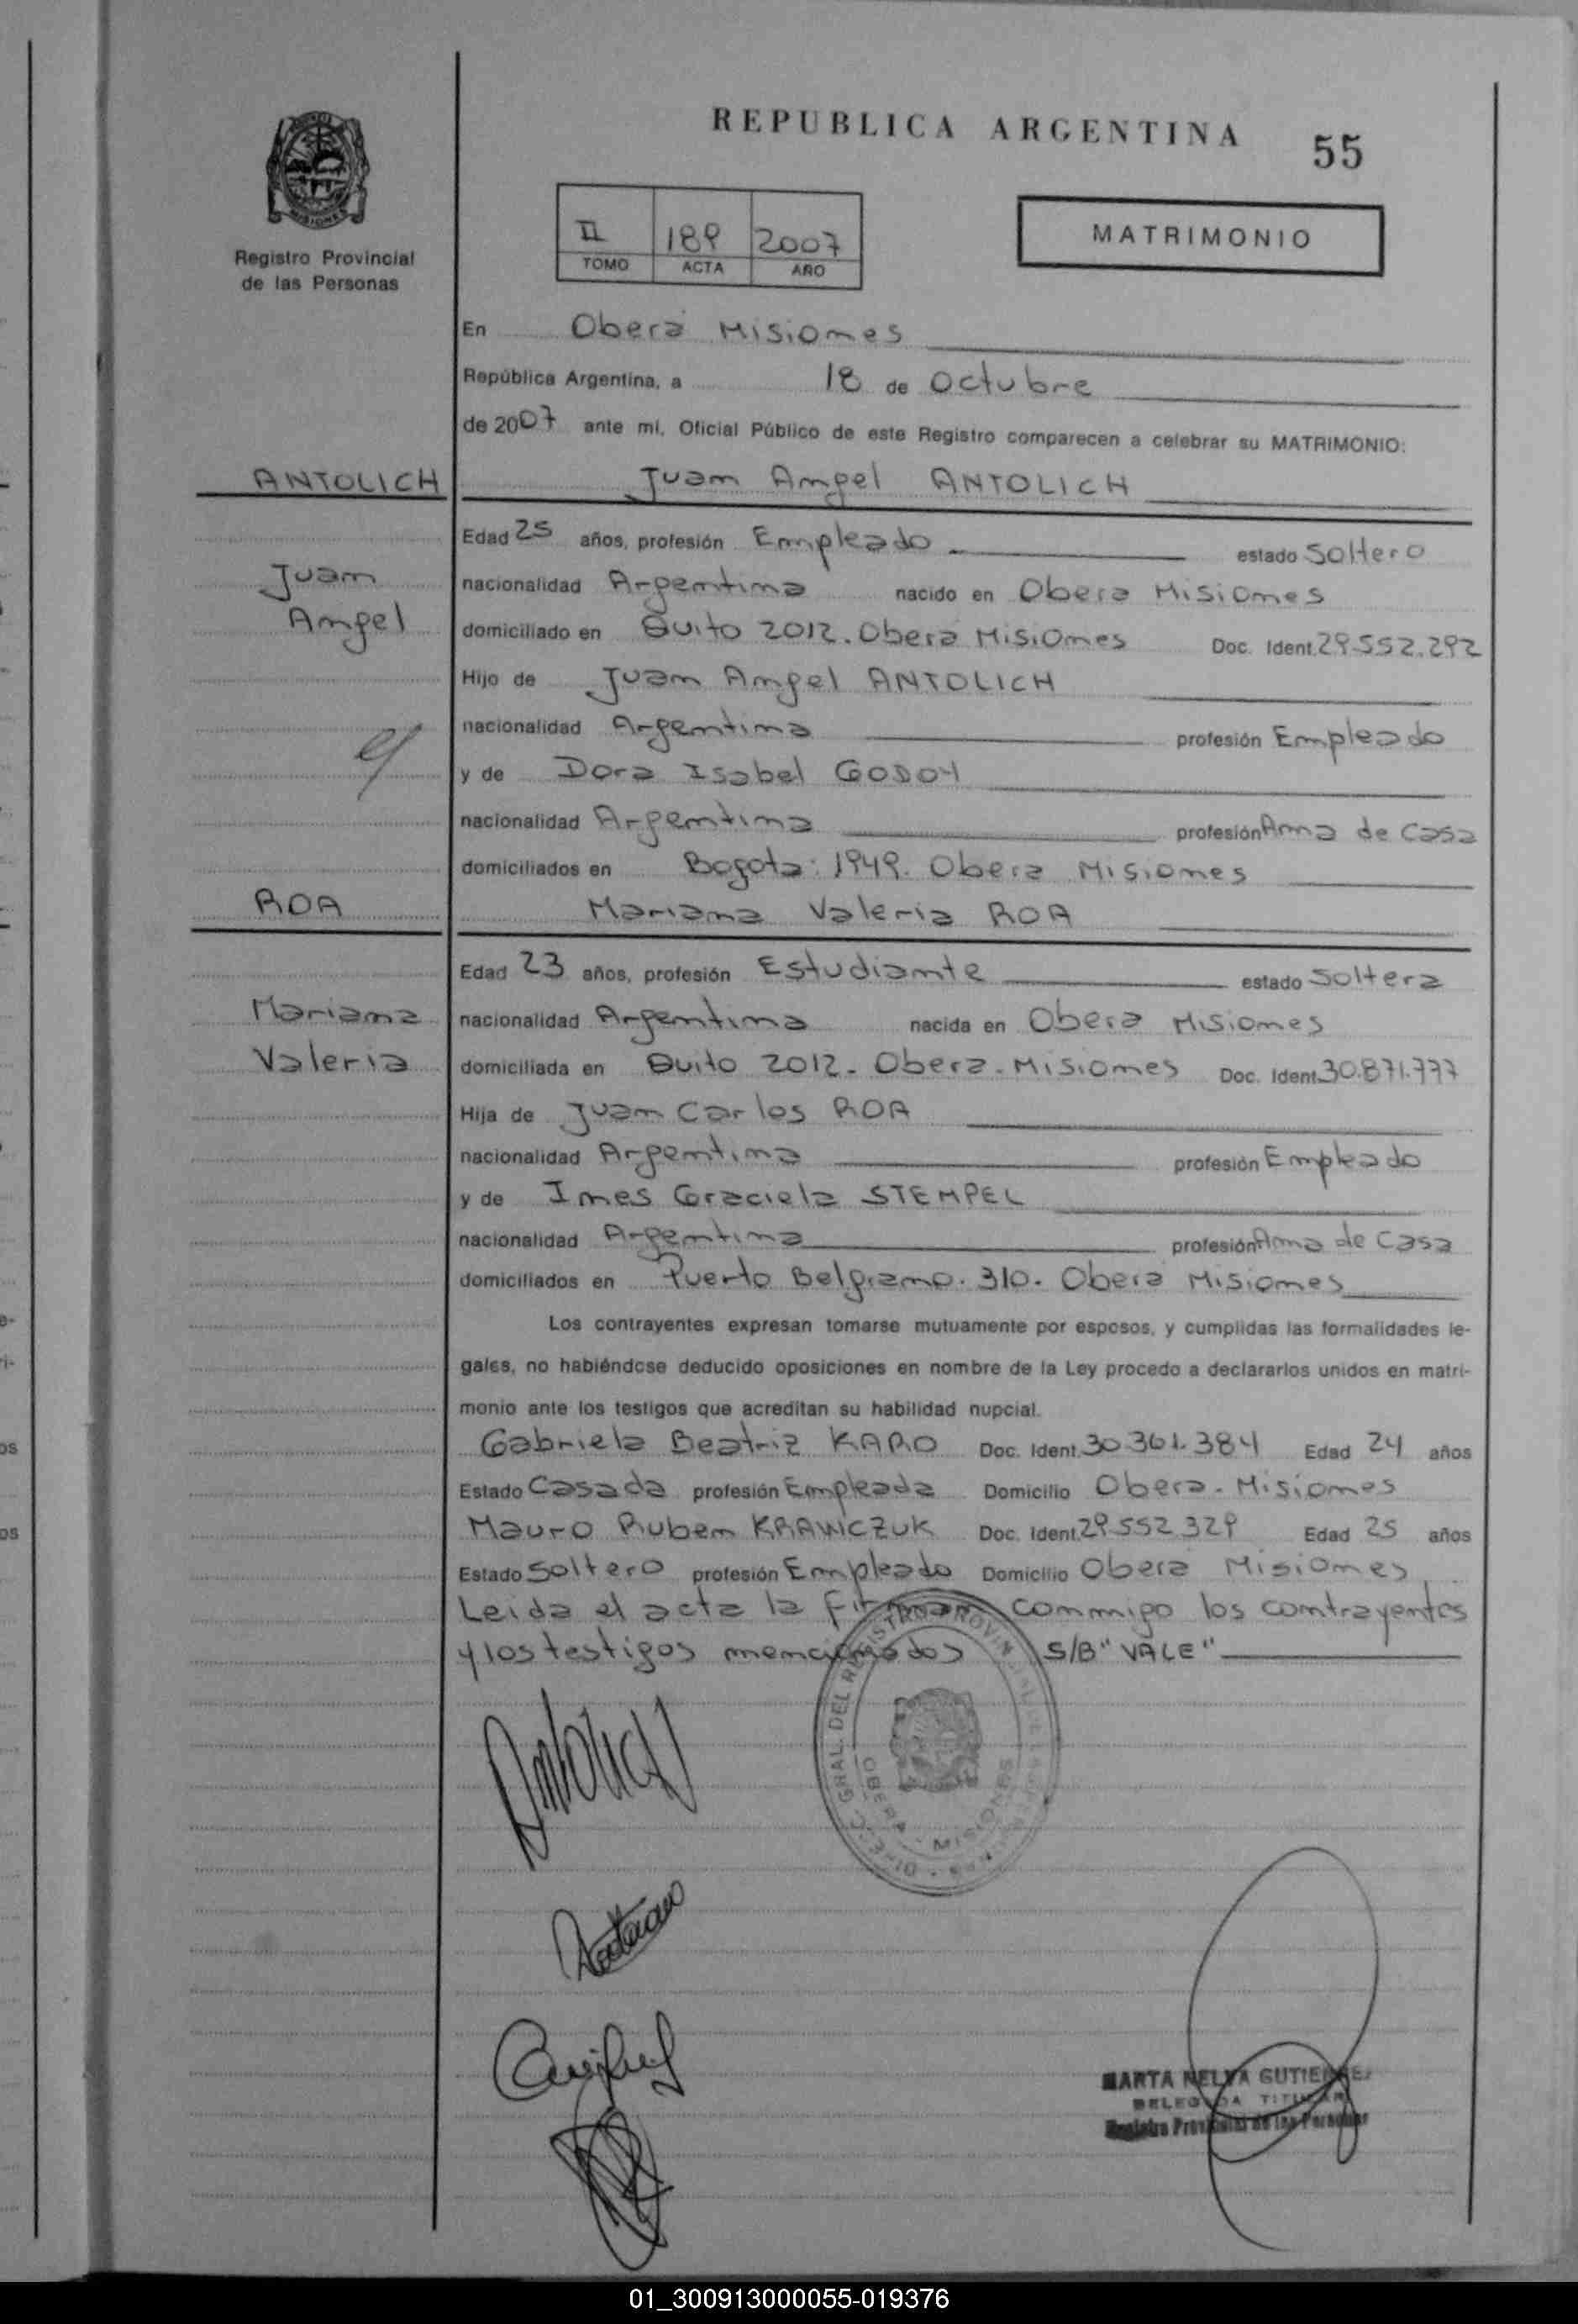 REPUBLICA ARGENTINA
55
MISIONES
Registro Provincial
de las Personas
II 189 2007
TOMO ACTA AÑO
MATRIMONIO
En Oberá Misiones
República Argentina, a 18 de Octubre
de 2007 ante mí, Oficial Público de este Registro comparecen a celebrar su MATRIMONIO:
ANTOLICH Juan Angel ANTOLICH
Edad 25 años, profesión Empleado estado Soltero
Juan nacionalidad Argentina nacido en Oberá Misiones
Angel domiciliado en Quito 2012. Oberá Misiones Doc. Ident. 29.552.292
Hijo de Juan Angel ANTOLICH
nacionalidad Argentina profesión Empleado
y
y de Dora Isabel GODOY
nacionalidad Argentina profesión Ama de Casa
domiciliados en Bogota: 1949. Oberá Misiones
ROA Mariana Valeria ROA
Edad 23 años, profesión Estudiante estado Soltera
Mariana nacionalidad Argentina nacida en Oberá Misiones
Valeria domiciliada en Quito 2012. Oberá. Misiones Doc. Ident. 30.871.777
Hija de Juan Carlos ROA
nacionalidad Argentina profesión Empleado
y de Ines Graciela STEMPEL
nacionalidad Argentina profesión Ama de Casa
domiciliados en Puerto Belgrano. 310. Oberá Misiones
Los contrayentes expresan tomarse mutuamente por esposos, y cumplidas las formalidades le-
gales, no habiéndose deducido oposiciones en nombre de la Ley procedo a declararlos unidos en matri-
monio ante los testigos que acreditan su habilidad nupcial.
Gabriela Beatriz KARO Doc. Ident. 30.361.384 Edad 24 años
Estado Casada profesión Empleada Domicilio Oberá. Misiones
Mauro Ruben KRAWCZUK Doc. Ident. 29.552.329 Edad 25 años
Estado Soltero profesión Empleado Domicilio Oberá Misiones
Leida el acta la firman conmigo los contrayentes
y los testigos mencionados S/B "VALE"
DIREC. GRAL. DEL REGISTRO PROVINCIAL DE LAS PERSONAS
OBERA - MISIONES
Antolich
MARTA NELVA GUTIERREZ
DELEGADA TITULAR
Registro Provincial de las Personas
01_300913000055-019376